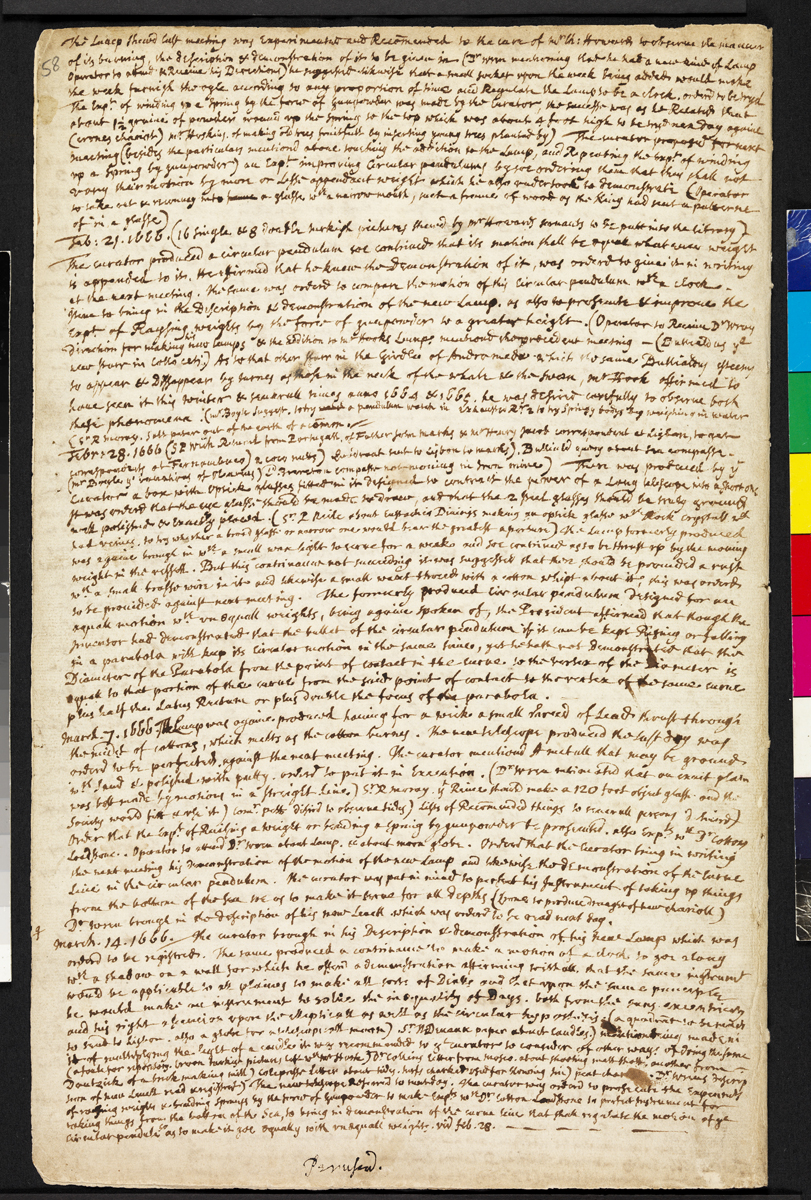 58
The Lamp shewd last meeting was Experimented and Recommended to the care of mr Ch: Howard to observe the manner
of its burning, the description & demonstration of it to be given in (Dr wren mentioning that he had a new kind of Lamp
operator to attend & Receive his Directions) he suggested likewise that a small socket upon the week being added would make
the week furnish the oyle according to any proportion of time and Regulate the Lamp to be a clock. orderd to be tryd
The Expt. of winding up a Spring by the force of gunpowder was made by the Curator, the successe was as he Related that
about 1½ graine of powder wound up the spring to the top which was about 4 foot high to be tryd next day againe
(crones chariott) mr Hoskins, of making old trees fruitfull by inserting young trees planted by) The curator proposd for next
meeting (besides the particulars mentiond above touching the addition to the Lamp, and Repeating the Expt. of winding
up a Spring by gunpowder) an Expt. improving Circular pendulums by soe ordering them that they shall not
vary their motion by more or Lesse appendant weight which he also undertook to demonstrate (operator
to take out & renewing into a glasse wth a narrow mouth, such a frame of wood as the King had sent a patterne
of in a glasse)
Feb: 21. 1666. (16 single & 8 double turkish pictures shewd by mr Howards servants to be putt into the library)
The curator produced a circular pendulum soe contrived that its motion shall be equall what ever weight
is appended to it. He affirmed that he knew the demonstration of it, was orderd to give it in in writing
at the next meeting. The same was orderd to compare the motion of this circular pendulum wth a clock.
Same to bring in the discription & demonstration of the new Lamp. as also to prosecute & improve the
Expt. of Raysing weights by the force of gunpowder to a greater height. (Operator to Receive Dr Wrens
direction for making his new Lamps & the addition to mr Hooks Lamps mentiond the precedent meeting - (Bullialdus ye
new starr in Collo ceti) As to that other starr in the Girdle of Andromeda which the same Bullialdus esteems
to appear & Disappear by turnes as those in the neck of the whale & the swan, mr Hook affirmed to
have seen it this winter & severall times anno 1664 & 1665. he was desird carefully to observe both
these phenomena. (mr Boyle suggest. to try a pendulum watch in Exhausted Rr. & to try Springy bodys by weighing in water
(Sr R moray. Salt peter out of the earth of a common.
Febr: 28. 1666 (Sr Rt. with Returnd from Portugall, of Father John marks & mr Henry Jacob correspondent at Lisbon, to gain
correspondents at Fernambuco) 2 coco nutts) Quadrant sent to Lisbon to marks) Bulliald query about sea compasse.
(mr Boyle ye variations of Hevelius) Ld Brereton compasse not moving in Iron mine) There was produced by ye
Curator a box with optick glasses fitted in it designed to contract the power of a Long telescope into a short one
It was orderd that the eye glasse should be made to draw, and that the 2 steel glasses should be truly ground
well polished & exactly placed. (Sr T Reile about cassiacks Dining, making an optick glasse wth Rock crystall wth
had veines, to try whether a broad glasse or narrow one would bear the greatest aperture) The Lamp formerly produced
was againe brough in wth a small wax light to serve for a weake and soe contrived as to be thrust up by the moving
weight in the vessell. But this contrivance not succeeding it was suggested that ther should be provided a rush
wth a small brasse wire in it and likewise a small waxt threed with a cotton whipt about it this was orderd
to be provided against next meeting. The formerly produced circular pendulum designed for an
equall motion wth unequall weights, being againe spoken of, the President affirmed that though the
Inventor had demonstrated that the bullet of the circular pendulum if it can be kept Rising or falling
in a parabola will keep its circular motion in the same time, yet he hath not demonstrated that the
Diameter of the Parabola from the point of contact in the curve to the vertex of the Diameter is
equall to that portion of the curve from the said point of contact to the vertex of the same curve
plus half the Latus Rectum or plus double the focus of the parabola.
March. 7. 1666 The Lamp was againe produced having for a wick a small threed of Lead thrust through
the middst of cottons, which melts as the cotton burnes. The new telescope produced the last day was
orderd to be perfected, against the next meeting. The curator mentiond A metall that may be ground
wth sand & polished with putty. orderd to put it in Execution. (Dr wren intimated that an exact plain
was best made by motions in a streight Line) Sr R moray. if Rives should make a 120 foot object glasse and the
Society would fitt & use it) comr. pett desird to observe tides) Lists of Recomended things to severall persons desired)
Order that the Expt. of Raising a weight or bending a spring by gunpowder be prosecuted. also Expt. wth Dr Cottons
Loadstone. Operator to attend Dr wren about Lamp. & about moon globe. Orderd that the curator bring in writing
the next meeting his Demonstration of the motion of the new Lamp and likewise the demonstration of the curve
Line in the circular pendulum. The curator was put in mind to perfect his Instrument of taking up things
from the bottom of the sea soe as to make it serve for all depths (crone to produce draught of new chariott)
Dr wren brough in the description of his new Leack which was orderd to be read next day.
March. 14. 1666. The curator brough in his Description & demonstration of his new Lamp which was
orderd to be registred. The same produced a contrivance to make a motion of a clock to goe along
wth a shadow on a wall for which he offerd a demonstration affirming withall, that the same instrument
would be applicable to all plaines to make all sorts of Dialls and that upon the same principle
he would make an instrument to solve the inequality of Days. both from the suns excentricity
and his right ascencion upon the Elliptical as well as the circular hypothesis (a quadrant to be made
to send to Lisbon. also a globe for telescope all moon) Sr N Duaank paper about candles) mention being made in
it of multiplying the light of a candle it was recommended to ye curator to consider of other ways of doing the same
Dantzick of a brick making mill) Colepresse letter about tides.
son of new Levell read & registerd) The new telescope deferrd to next day. The curator was orderd to prosecute the Experiments
of raising weights & bending springs by the force of Gunpowder to make Expts. wth Dr Cottons Loadstone to perfect Instrument for
taking things from the bottom of the Sea, to bring in demonstration of the curve line that shall regulate the motion of ye
circular pendulu. so as to make it goe equally with unequall weights. vid feb. 28.
Perused.